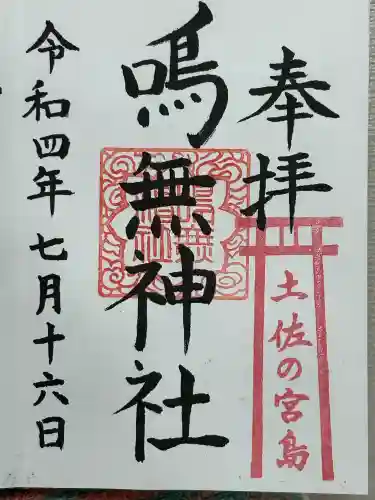 奉拝
土佐の宮島
鳴無神社
令和四年七月十六日